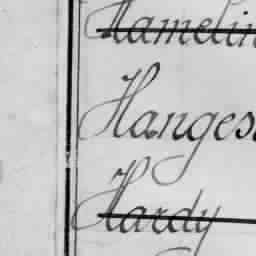 Hamelin
Hanges
Hardy